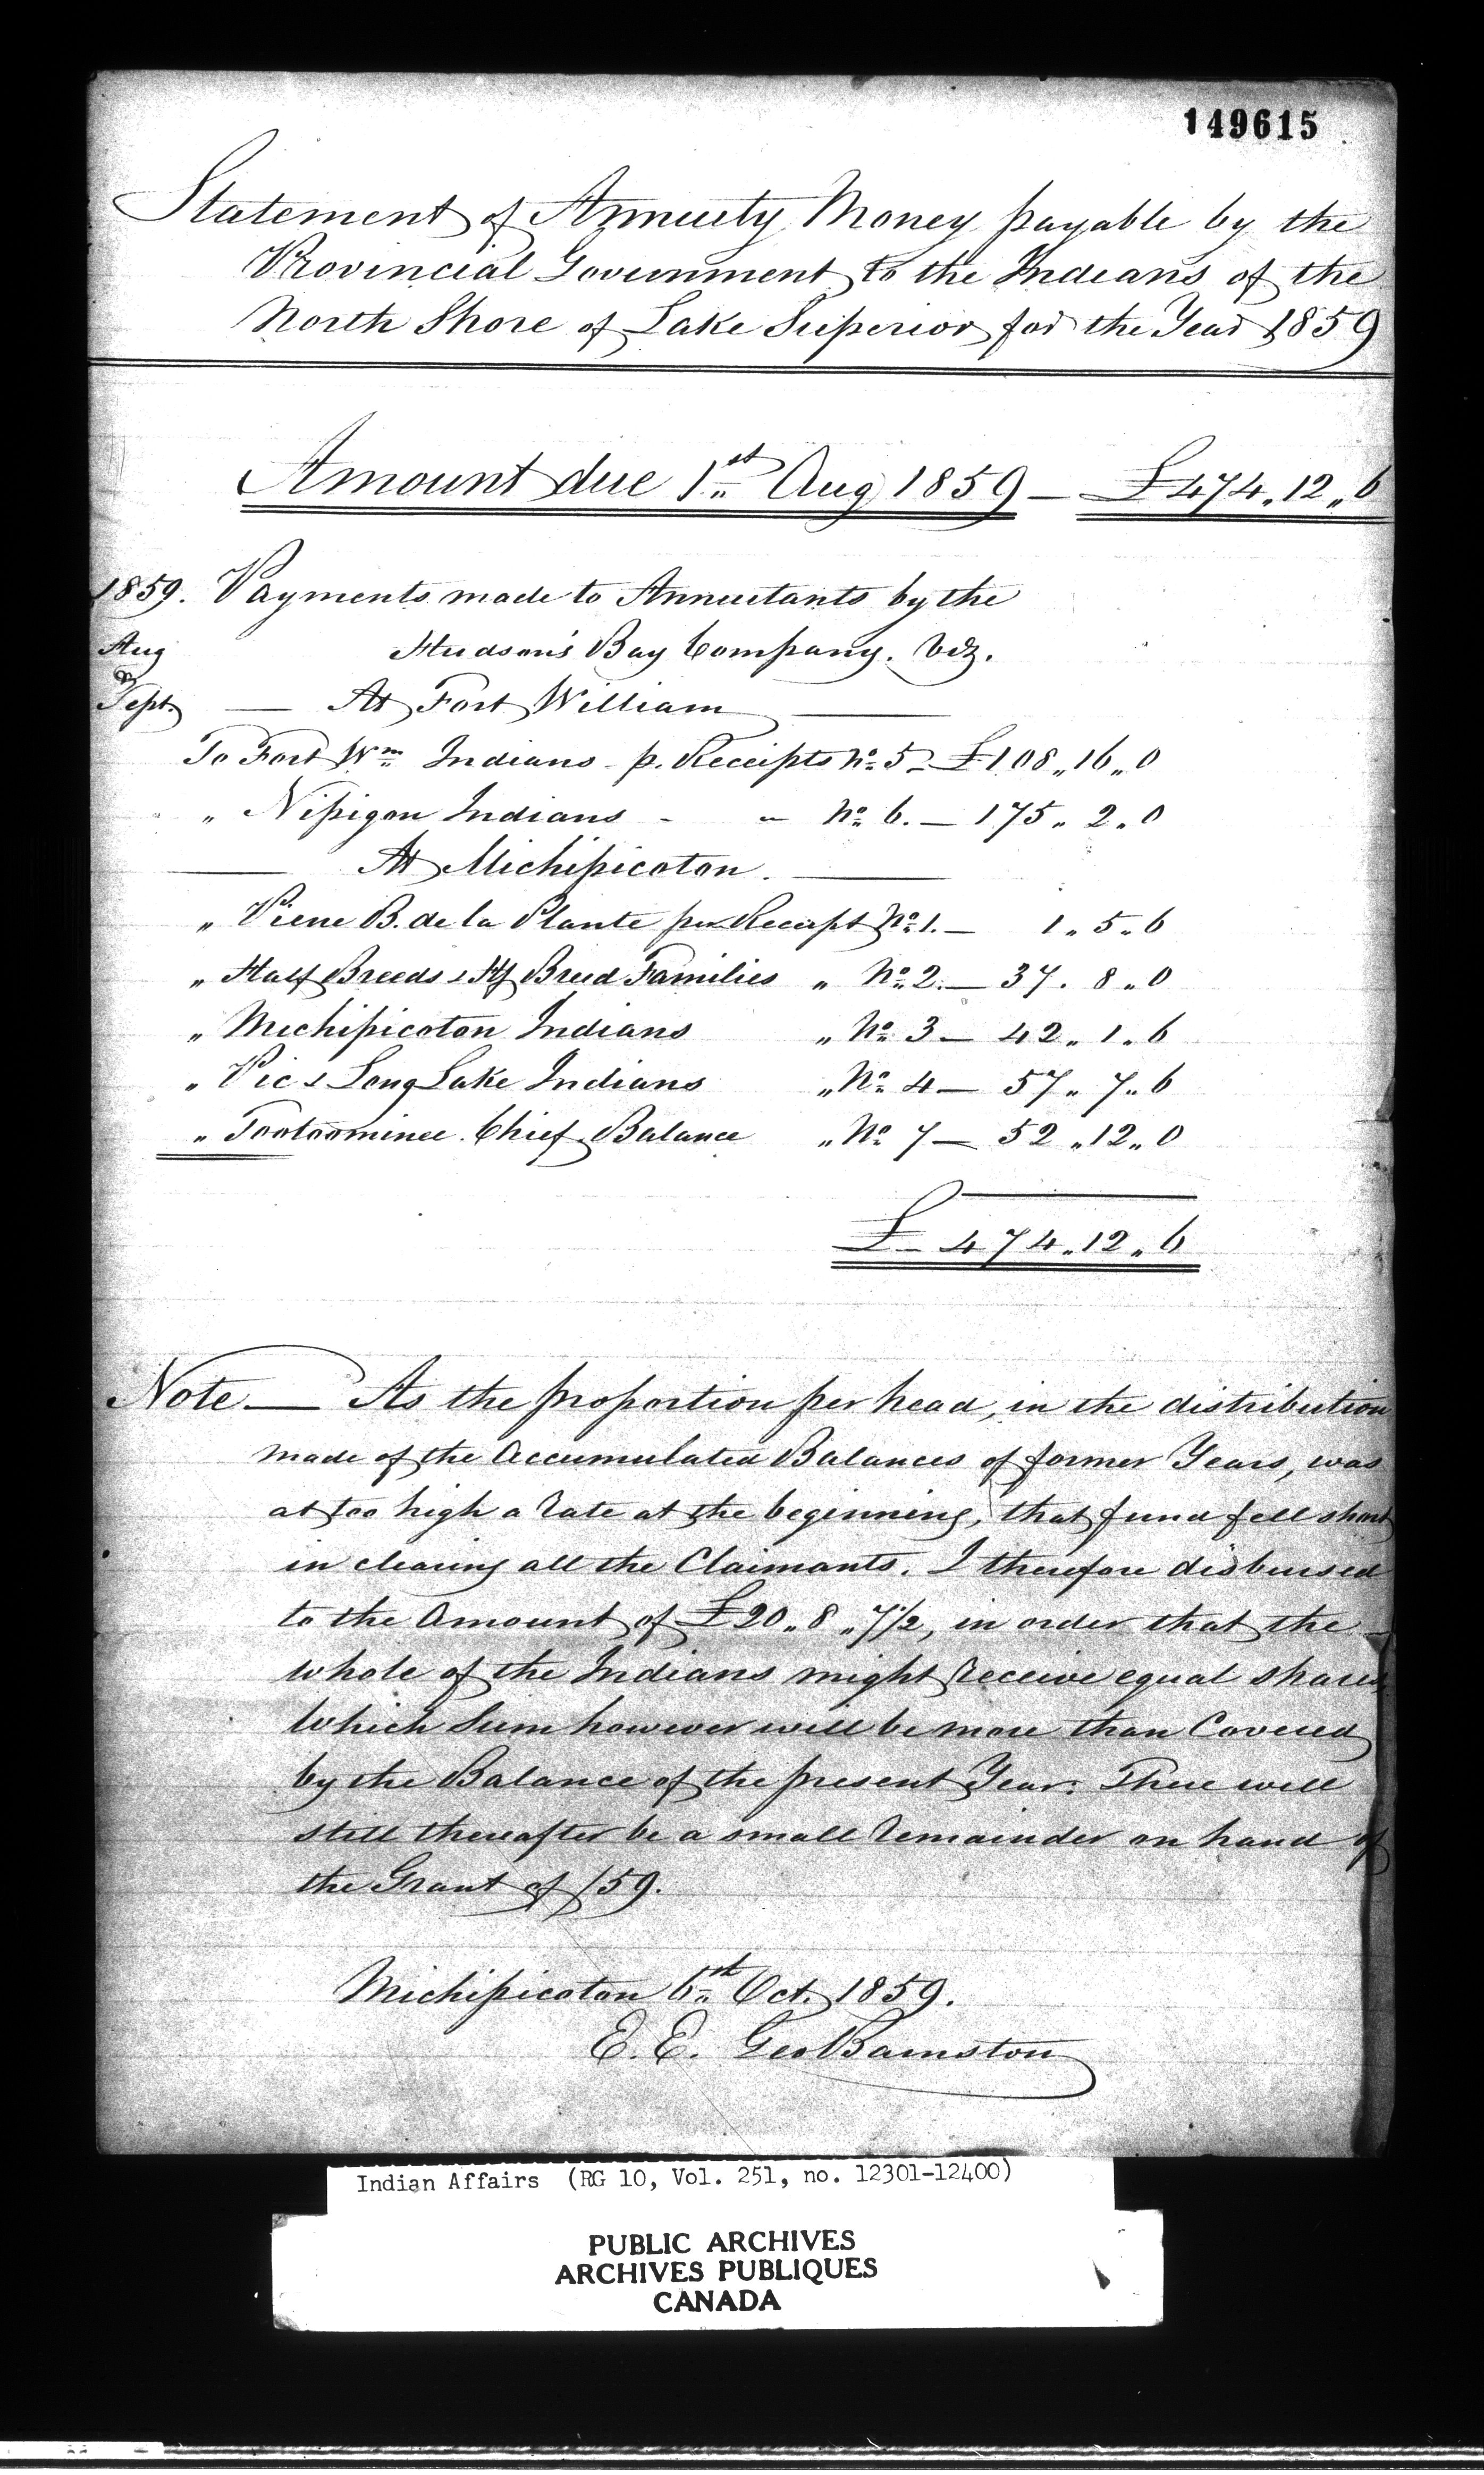 149615
Statement of Annuity Money payable by the
Provincial Government to the Indians of the
North Shore of Lake Superior for the Year 1859
Amount due 1st Aug 1859 — £474.12.6
1859. Payments made to Annuitants by the
Aug Hudson's Bay Company. Viz.
&
Sept. — At Fort William —
To Fort Wm Indians - p. Receipts No 5 - £108.16.0
" Nipigon Indians - " No 6. — 175.2.0
— At Michipicoton. —
" Pierre B. de la Plante per Receipt No 1. — 1.5.6
" Half Breeds & Hf Breed Families " No 2. — 37.8.0
" Michipicoton Indians " No 3 — 42.1.6
" Pic & Long Lake Indians " No 4 — 57.7.6
" Tootoominee. Chief. Balance " No 7 — 52.12.0
£ 474.12.6
Note — As the proportion per head, in the distribution
made of the Accumulated Balances of former Years, was
at too high a rate at the beginning, that fund fell short
in clearing all the Claimants. I therefore disbursed
to the Amount of £20.8.7½, in order that the
whole of the Indians might receive equal shares
which Sum however will be more than Covered
by the Balance of the present Year. There will
still thereafter be a small remainder on hand of
the Grant of /59.
Michipicoton 6st Oct. 1859.
E.E. Geo Barnston
Indian Affairs (RG 10, Vol. 251, no. 12301-12400)
PUBLIC ARCHIVES
ARCHIVES PUBLIQUES
CANADA